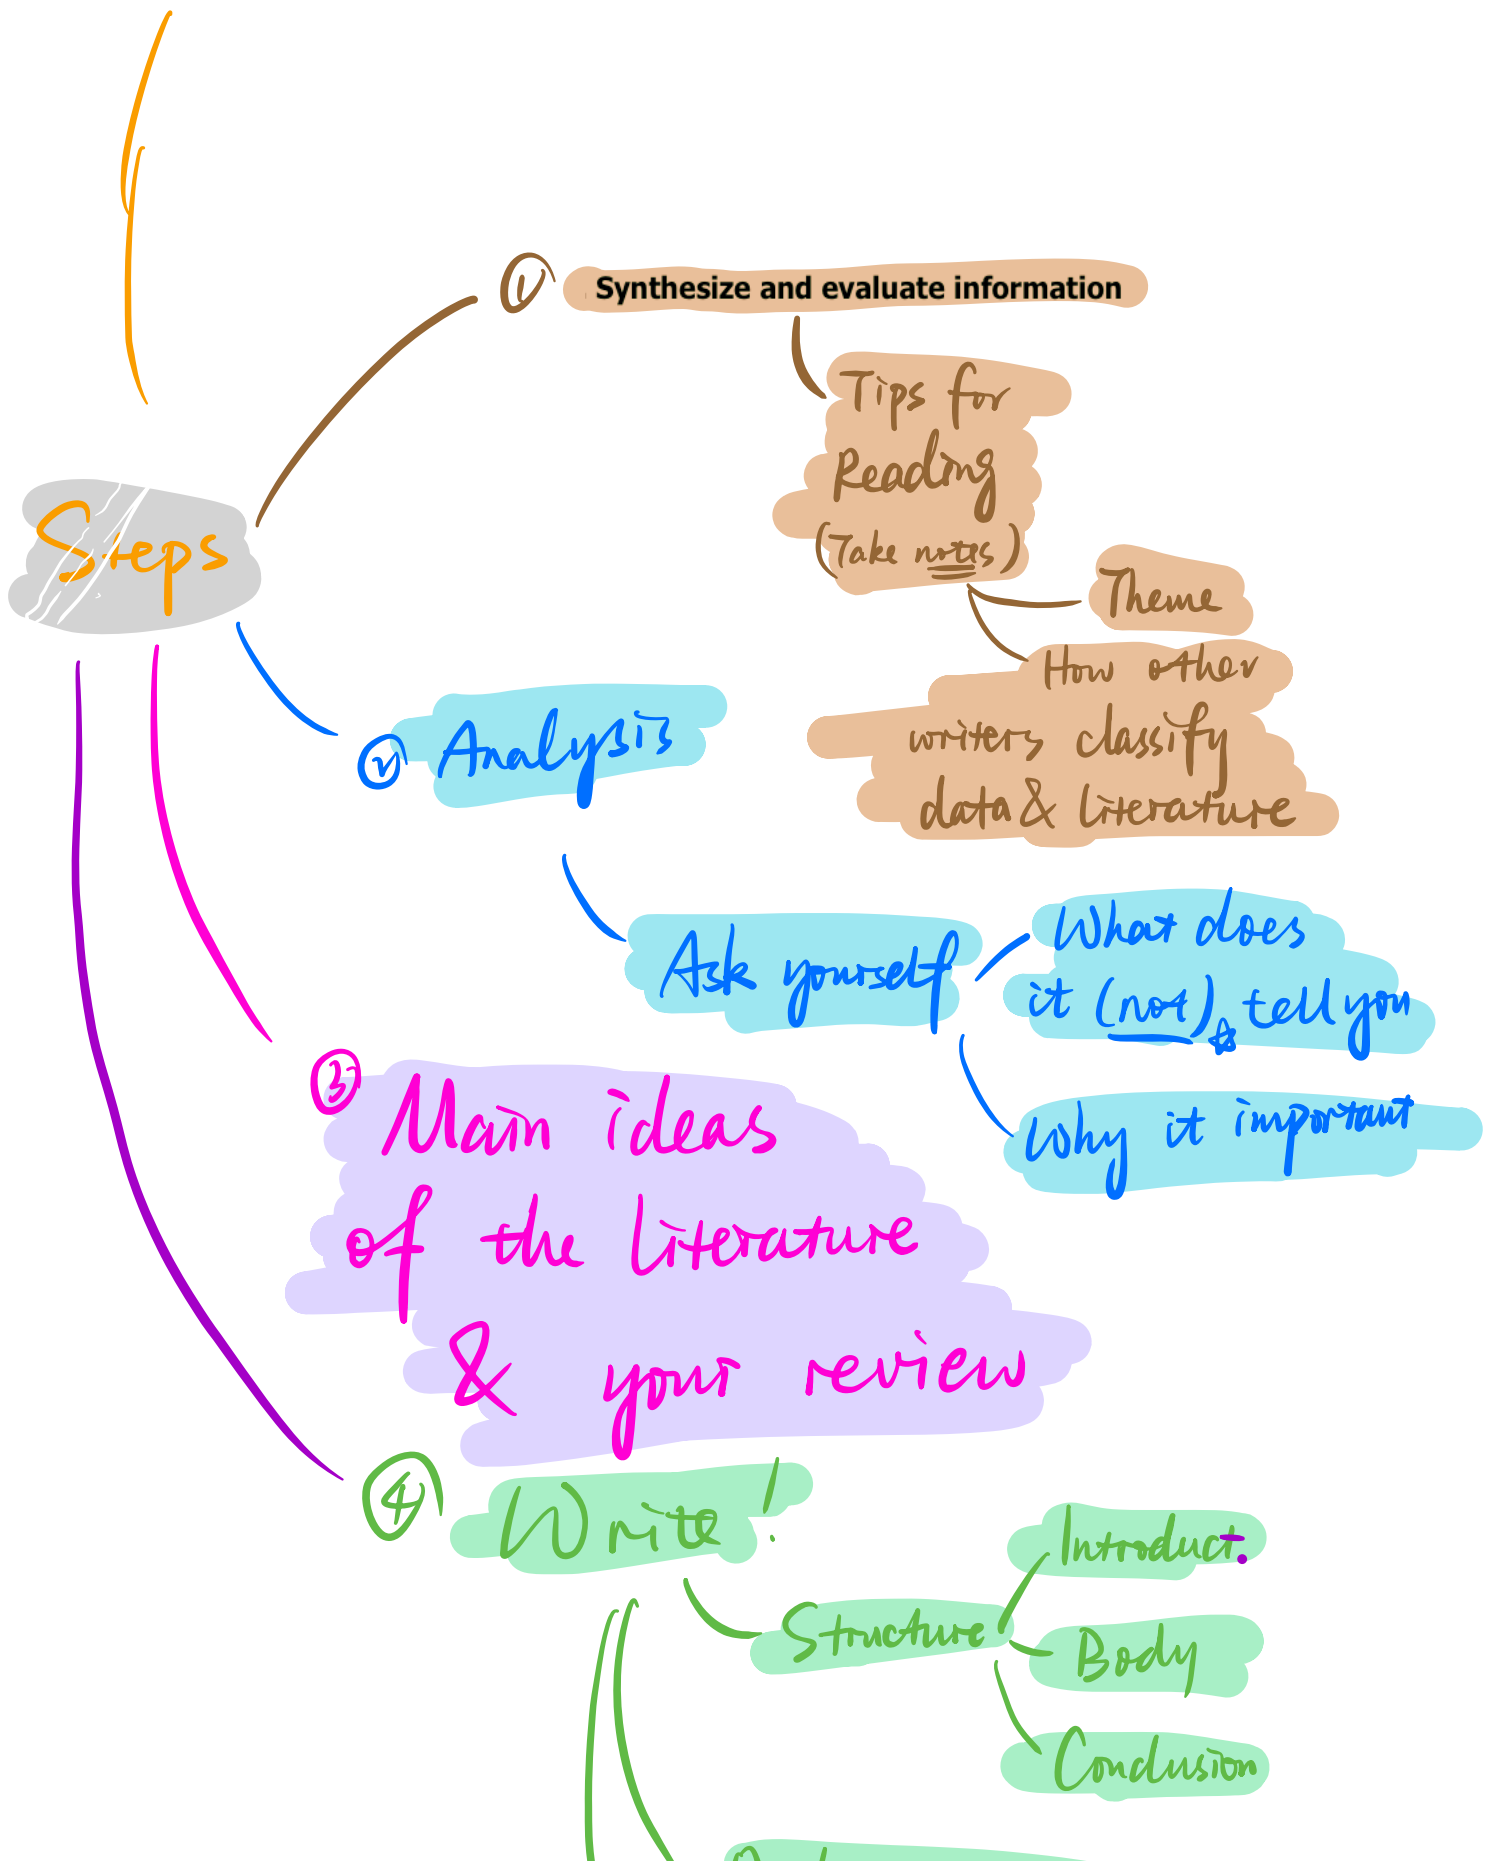 ① Synthesize and evaluate information
Tips for
Reading
(Take notes)
Steps
Theme
How other
writers classify
data & literature
② Analysis
Ask yourself
What does
it (not) tell you
Why it important
③ Main ideas
of the literature
& your review
④ Write!
Introduct.
Structure
Body
Conclusion